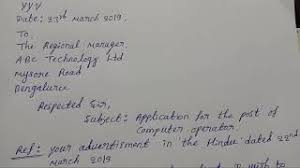 YYY
Date: 23rd March 2019
To,
The Regional Manager,
ABC Technology Ltd
Mysore Road
Bengaluru
Respected Sir,
Subject: Application for the post of
Computer operator.
Ref: your advertisment in the Hindu dated 22nd
March 2019
I wish to